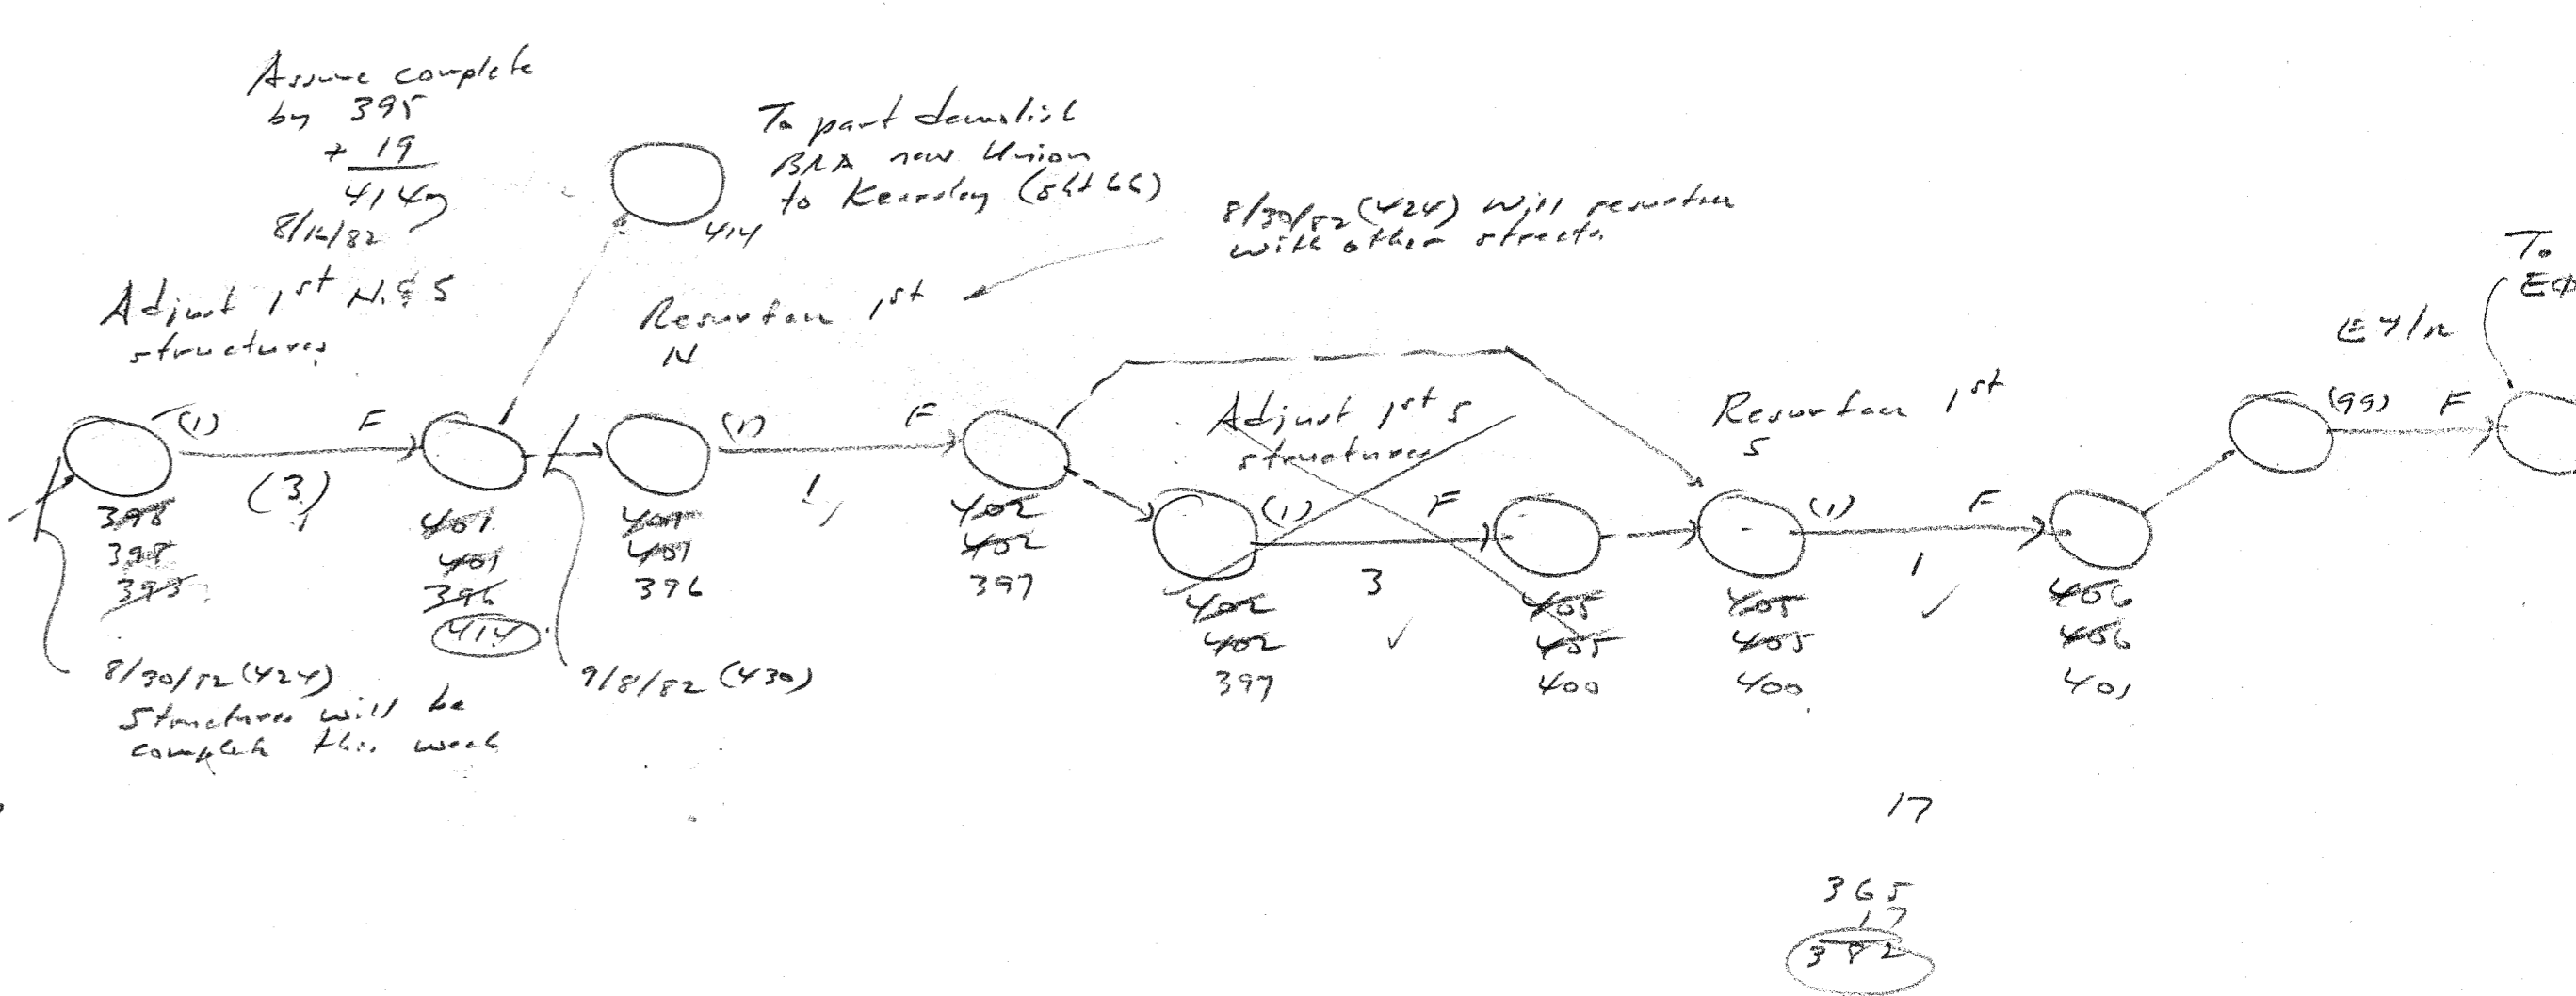 Assume complete
by 395
+ 19
414
8/16/82
To part demolish
BRA new Union
to Kearsley (sht 66)
414
8/30/82 (424) Will resurface
with other streets
To
Adjust 1st N. & S
structures
Resurface 1st
N
Adjust 1st S
structures
Resurface 1st
S
(1) F
(3)
(1) F
1
(1) F
3
(1) F
1
(99) F
398
398
393
401
401
396
414
401
401
396
402
402
397
402
402
397
405
405
400
405
405
400
406
406
401
8/30/82 (424)
Structures will be
complete this week
9/8/82 (430)
17
365
17
382